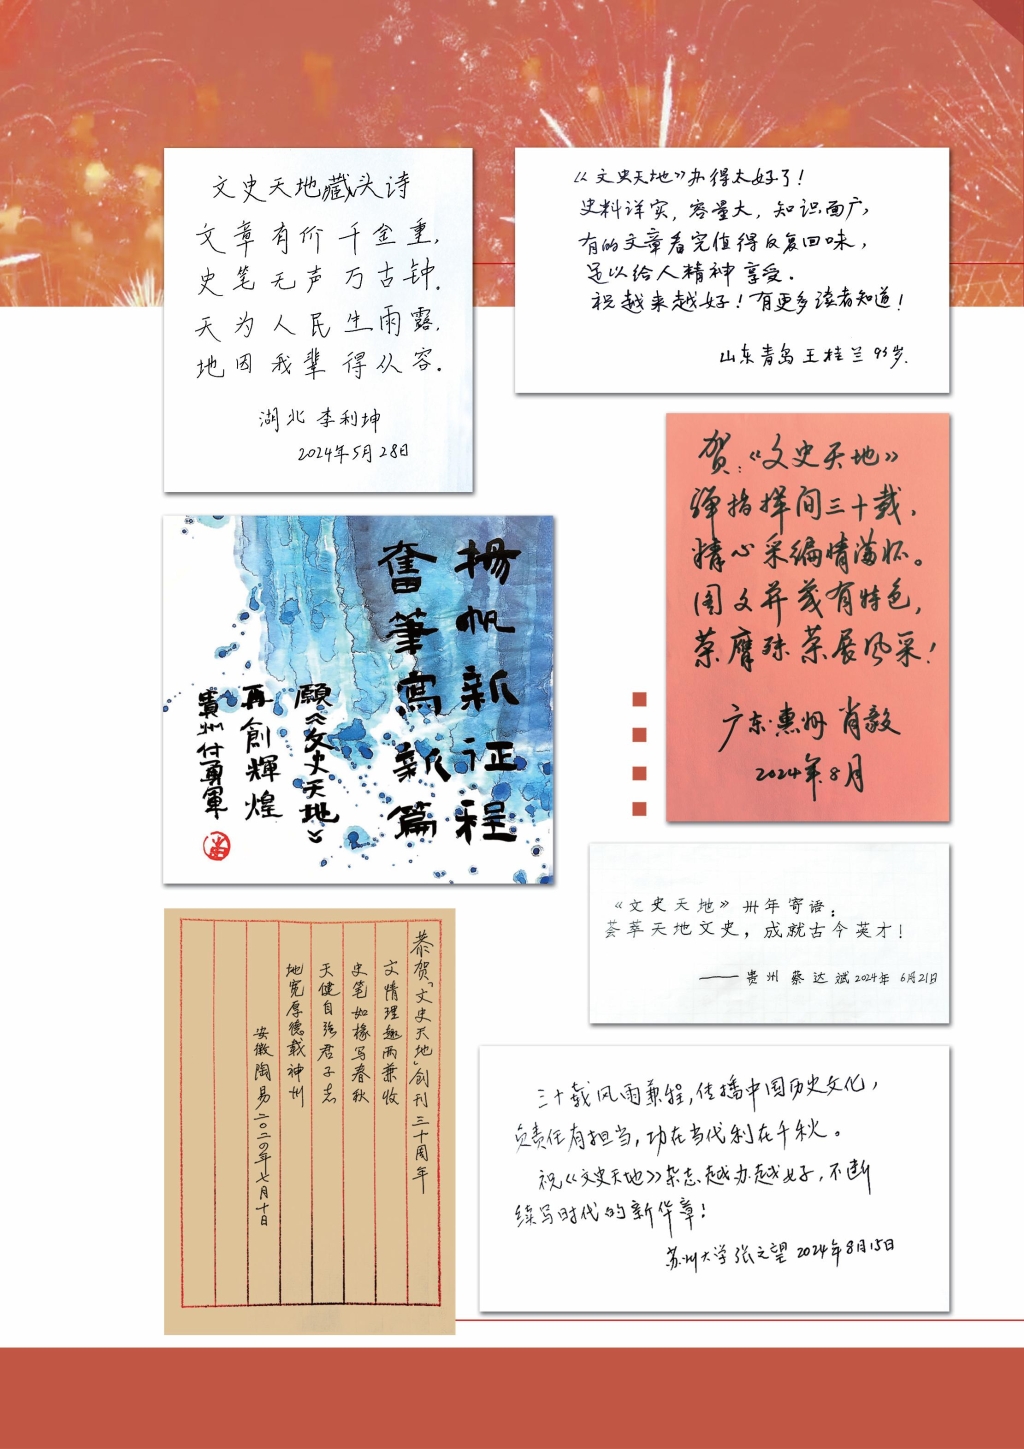 文史天地藏头诗
文章有价千金重，
史笔无声万古钟。
天为人民生雨露，
地因我辈得从容。
湖北 李利坤
2024年5月28日
《文史天地》办得太好了！
史料详实，容量大，知识面广，
有的文章看完值得反复回味，
足以给人精神享受。
祝越来越好！有更多读者知道！
山东青岛 王桂兰 93岁.
贺：《文史天地》
弹指挥间三十载，
精心采编情满怀。
图文并茂有特色，
荣膺殊荣展风采！
广东·惠州 肖毅
2024年8月
揚帆新征程
奮筆寫新篇
願《文史天地》
再創輝煌
貴州付勇軍
《文史天地》卅年寄语：
荟萃天地文史，成就古今英才！
——贵州 蔡达斌 2024年6月21日
恭贺“文史天地”创刊三十周年
文情理趣两兼收
史笔如椽写春秋
天健自强君子志
地宽厚德载神州
安徽陶易二〇二四年七月十日
三十载风雨兼程，传播中国历史文化，
负责任有担当，功在当代利在千秋。
祝《文史天地》杂志越办越好，不断
续写时代的新华章！
苏州大学张文望 2024年8月15日